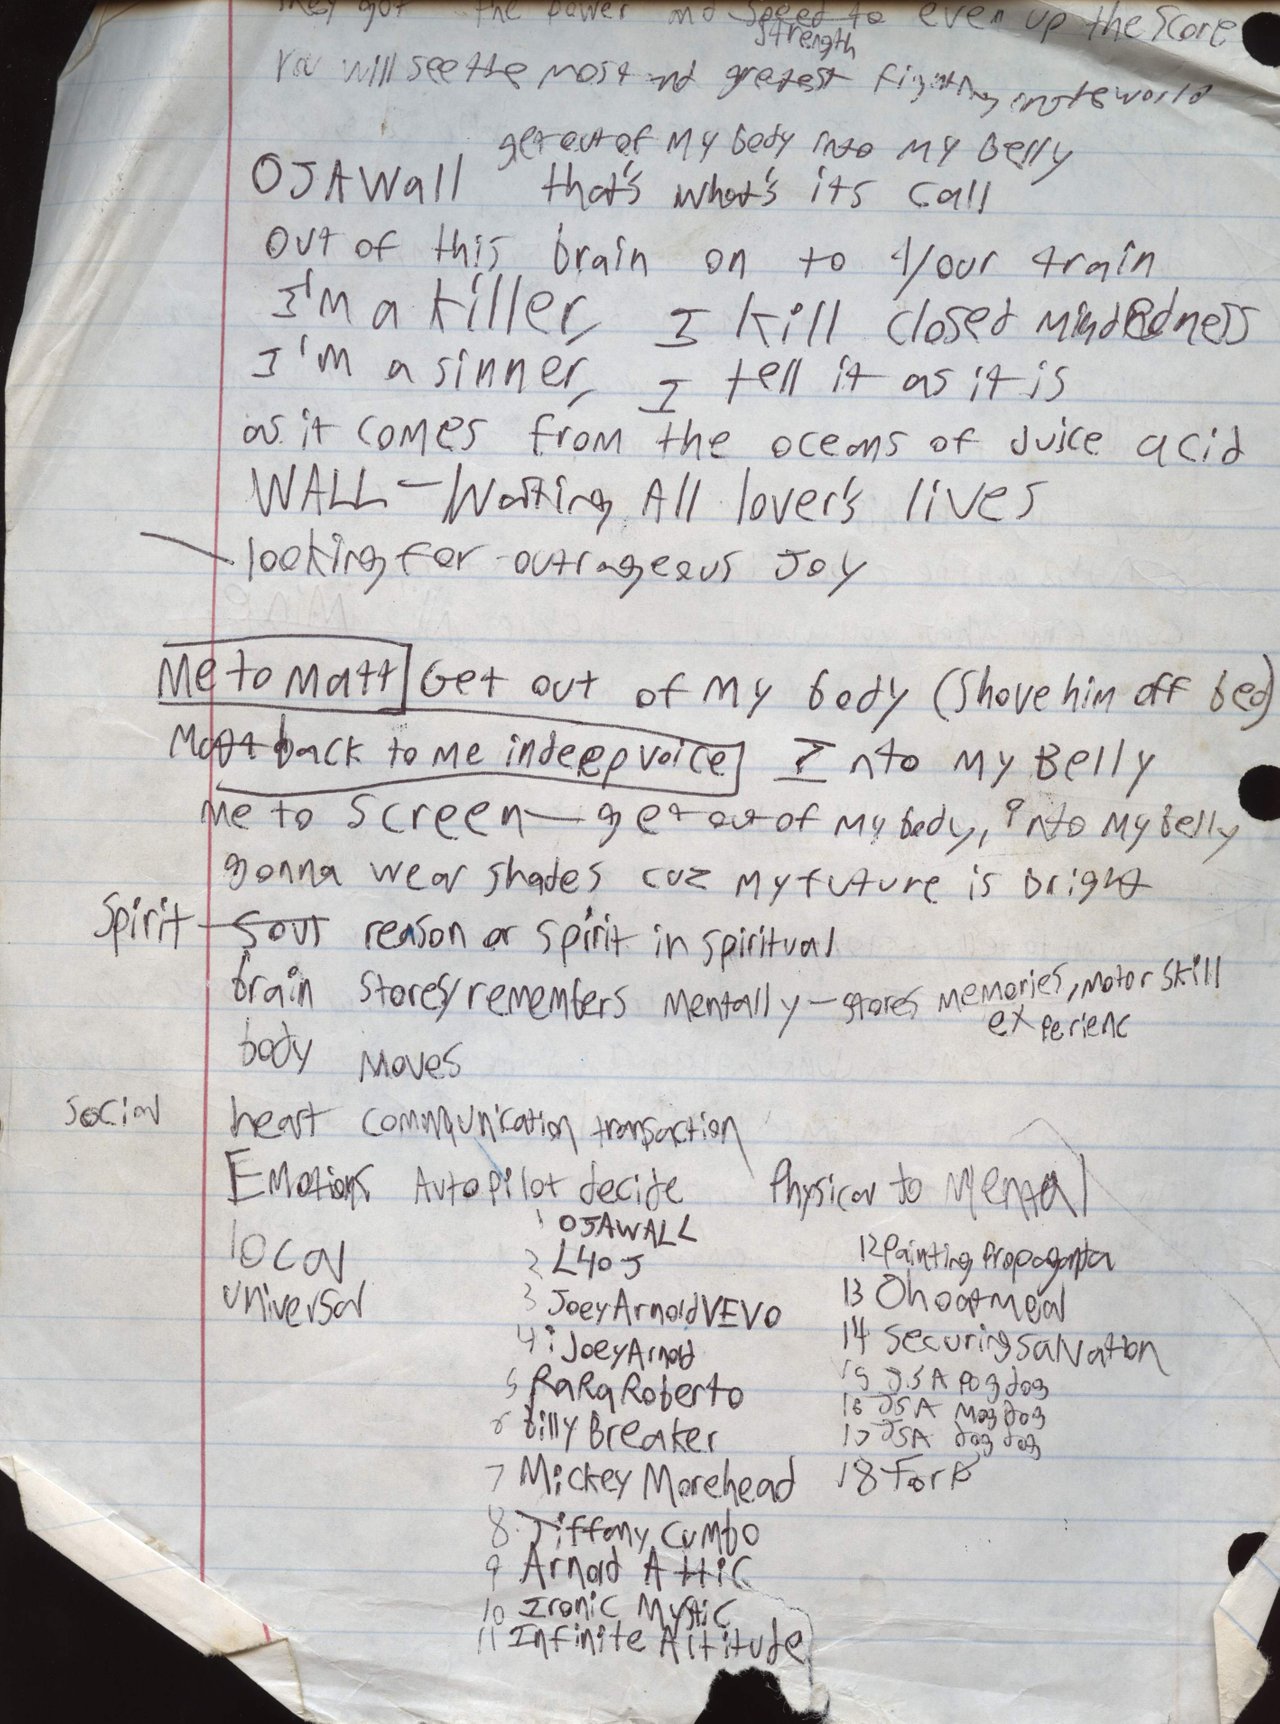 They got the power and speed to even up the score
strength
You will see the most and greatest fighting in the world
get out of my body into my belly
OJAWall that's what's its call
out of this brain on to your train
I'm a killer, I kill closed mindedness
I'm a sinner, I tell it as it is
as it comes from the oceans of Juice acid
WALL - Waiting All lover's lives
looking for outrageous Joy
Me to Matt Get out of my body (Shove him off bed)
Matt back to me in deep voice Into my Belly
Me to Screen - get out of my body, into my belly
gonna wear shades cuz my future is bright
Spirit - soul reason or spirit in spiritual
brain stores/remembers mentally - stores memories, motor skill
experienc
body moves
social heart communication transaction
Emotions Autopilot decide Physical to Mental
local
universal
1 OJAWALL
2 L4OJ
3 JoeyArnoldVEVO
4 iJoeyArnold
5 RaRaRoberto
6 Billy Breaker
7 Mickey Morehead
8 Tiffany Cumbo
9 Arnold Attic
10 Ironic Mystic
11 Infinite Altitude
12 Painting Propaganda
13 Ohoatmeal
14 Securing Salvation
15 JSA Pog dog
16 JSA Mog dog
17 JSA dog dog
18 Fork